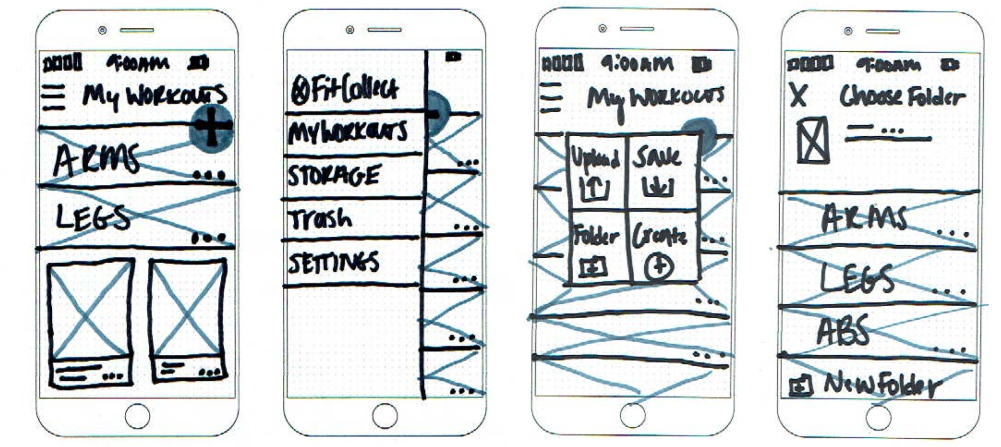 9:00AM
My WORKOUTS
ARMS
LEGS
FitCollect
MY WORKOUTS
STORAGE
Trash
SETTINGS
9:00AM
My WORKOUTS
Upload
Save
Folder
Create
9:00AM
X Choose Folder
ARMS
LEGS
ABS
New Folder